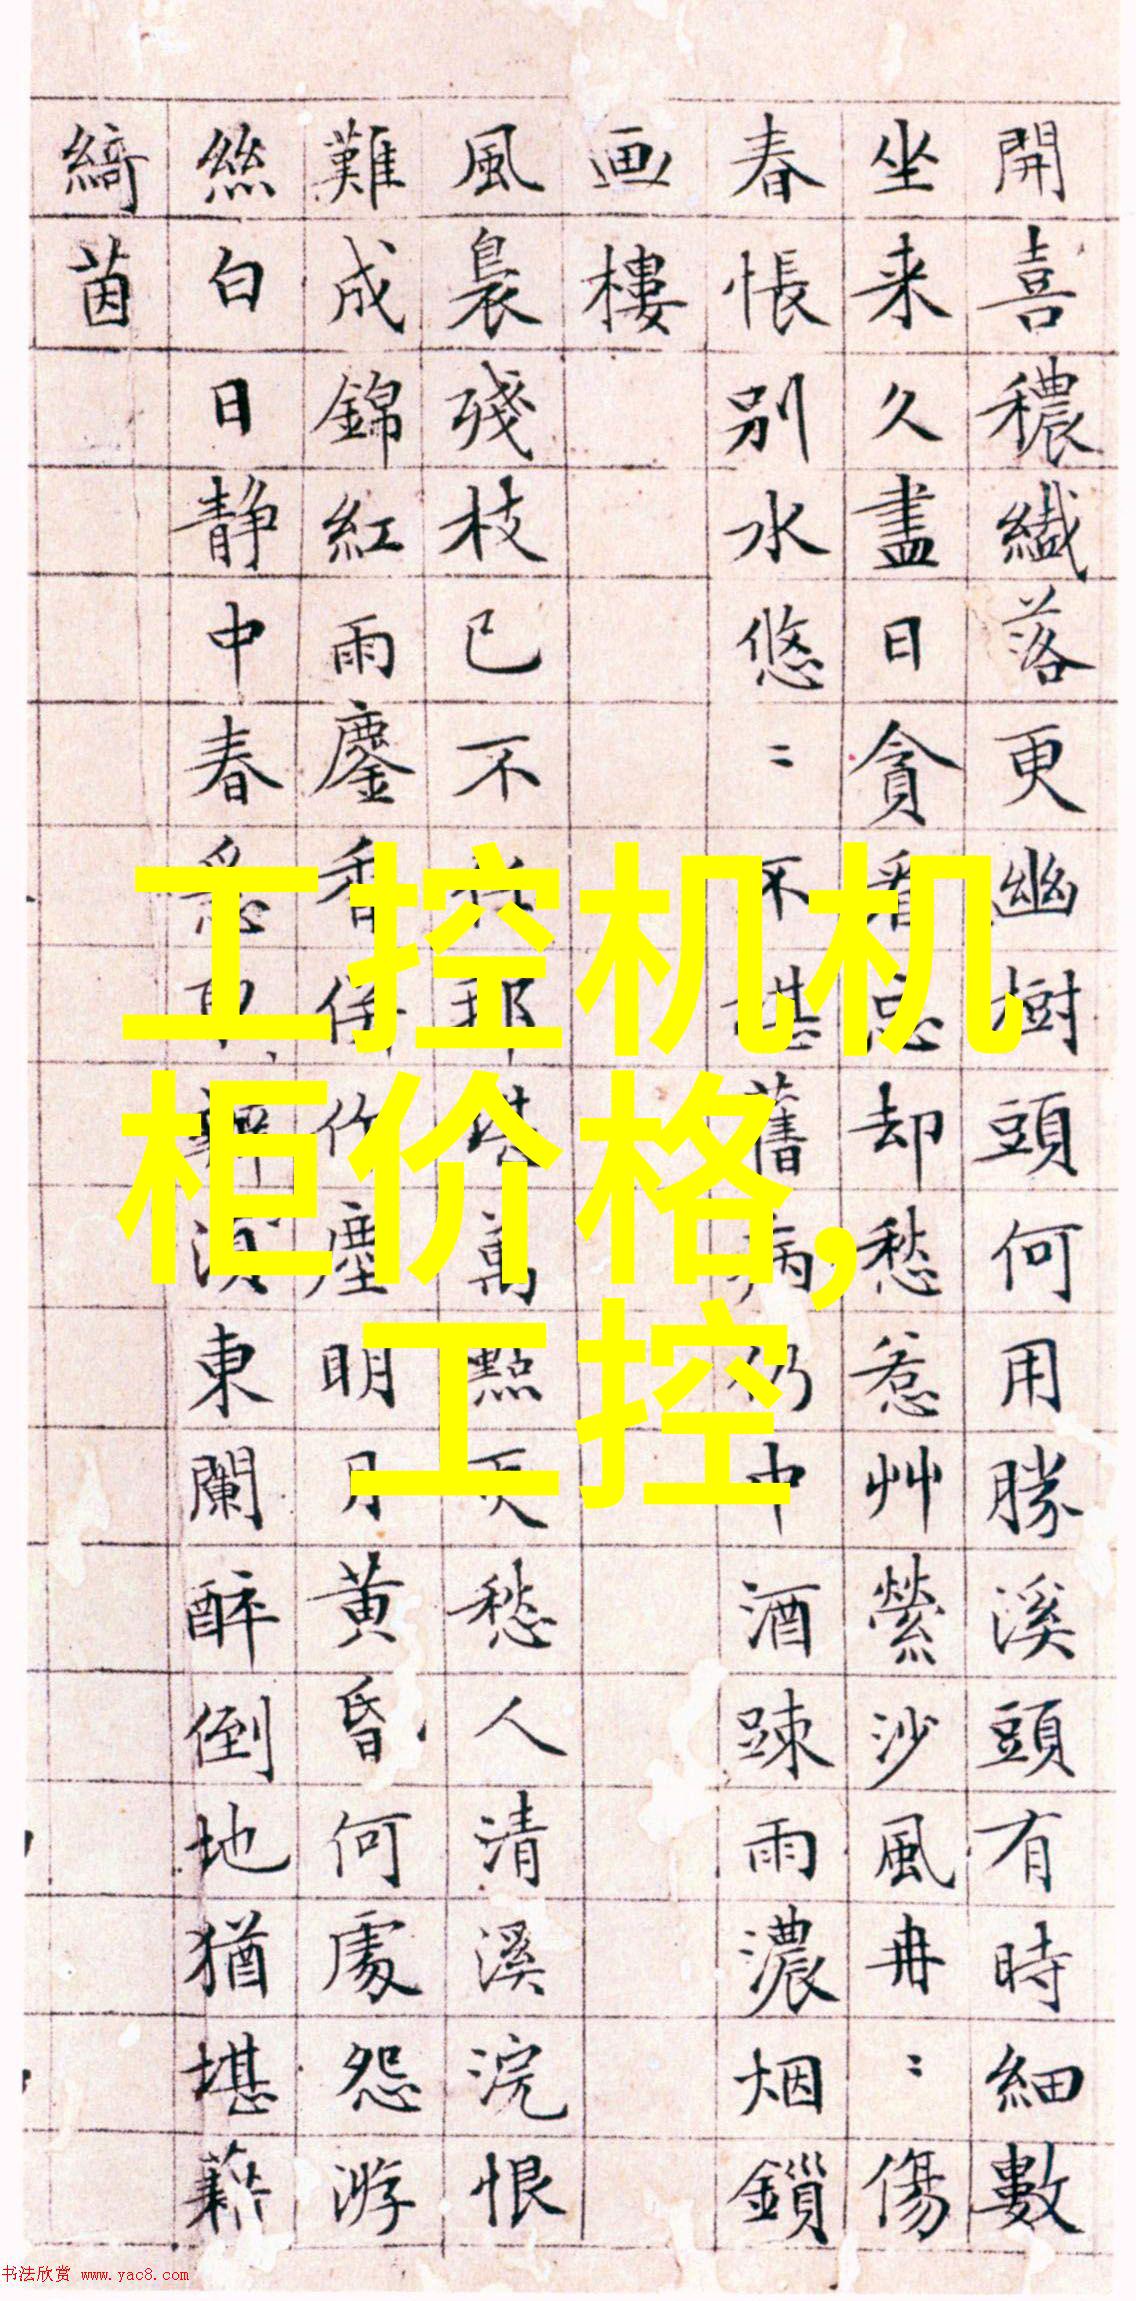 開喜穠纎落更幽樹頭何用勝溪頭有時細數
坐来久盡日貪看忘却愁惹艸縈沙風冉〻傷
春悵別水悠〻不堪舊病仍中酒踈雨濃烟鎖
画樓
風裊殘枝已不 那堪萬點更愁人清溪浣恨
難成錦紅雨鏖香作塵明月黄昏何處怨游
絲白日静中春 東闌醉倒地猶堪藉
綺茵
工控机机
柜价格,
工控
书法欣赏 www.yac8.com